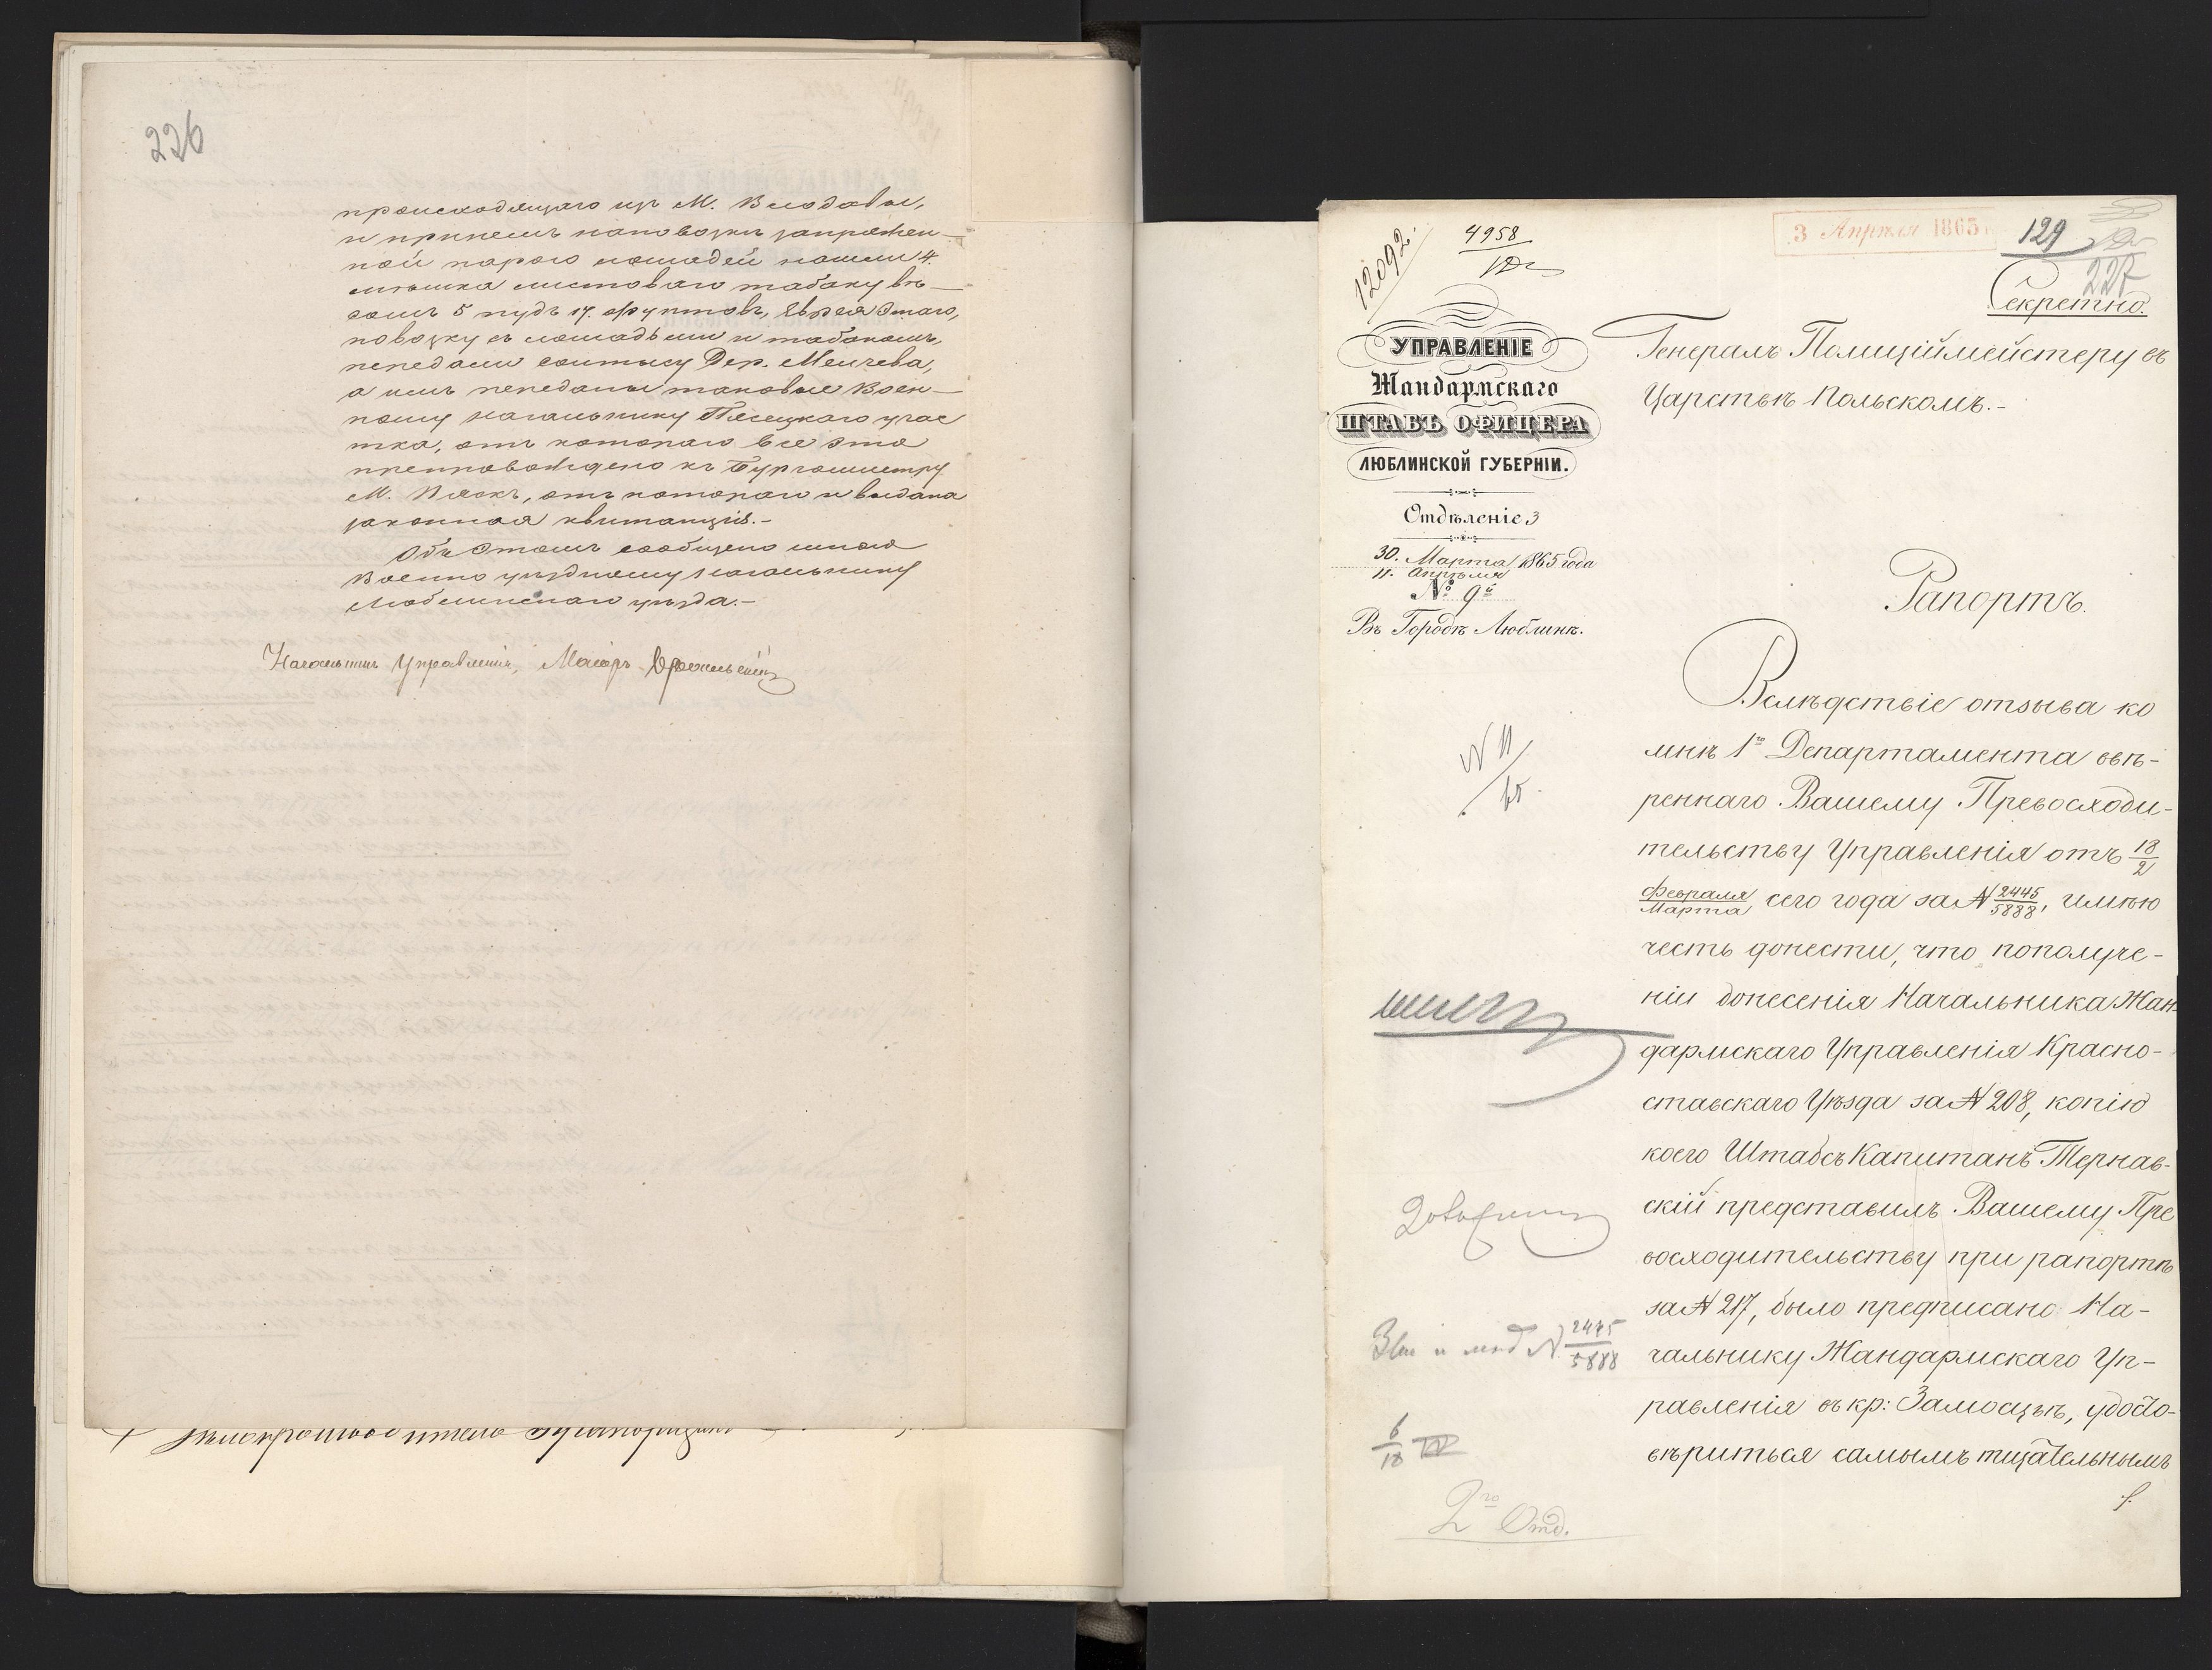 226
происходящаго изъ М. Влодавы,
и при немъ на повозкѣ запряжен-
ной парою лошадей нашли 4.
мѣшка листоваго табаку вѣ-
сомъ 5 пудъ 17. фунтовъ, Еврея этаго,
повозку съ лошадьми и табакомъ,
передали солтысу Дер. Мелчева,
а имъ переданы таковые Воен-
ному Начальнику Пясецкаго учас
тка, отъ котораго все это
препровождено къ Бургомистру
М. Пяскъ, отъ котораго и выдана
законная квитанція.-
Объ этомъ сообщено мною
Военно уѣздному Начальнику
Люблинскаго уѣзда.-
Начальникъ Управленія, Маіоръ
12092.
4958
3 Апрѣля 1865
129
227
Секретно.
УПРАВЛЕНІЕ
Жандармскаго
ШТАБЪ ОФИЦЕРА
ЛЮБЛИНСКОЙ ГУБЕРНІИ.
Отдѣленіе 3
30. Марта 1865 года
11. Апрѣля
№ 96
Въ Городѣ Люблинѣ.
Генералъ Полиціймейстеру въ
Царствѣ Польскомъ.-
Рапортъ.
Вслѣдствіе отзыва ко
мнѣ 1го Департамента ввѣ-
реннаго Вашему Превосходи-
тельству Управленія отъ 18/2
Февраля/Марта сего года за № 2445/5888, имѣю
честь донести, что по получе-
ніи донесенія Начальника Жан-
дармскаго Управленія Красно-
ставскаго Уѣзда за № 208, копію
коего Штабсъ Капитанъ Тернав-
скій представилъ Вашему Пре
восходительству при рапортѣ
за № 217, было предписано На-
чальнику Жандармскаго Уп-
равленія въ кр: Замосцьѣ, удосто-
вѣриться самымъ тщательнымъ
№ 11/65
№ 2445/5888
6/18 IV
2го Отд.